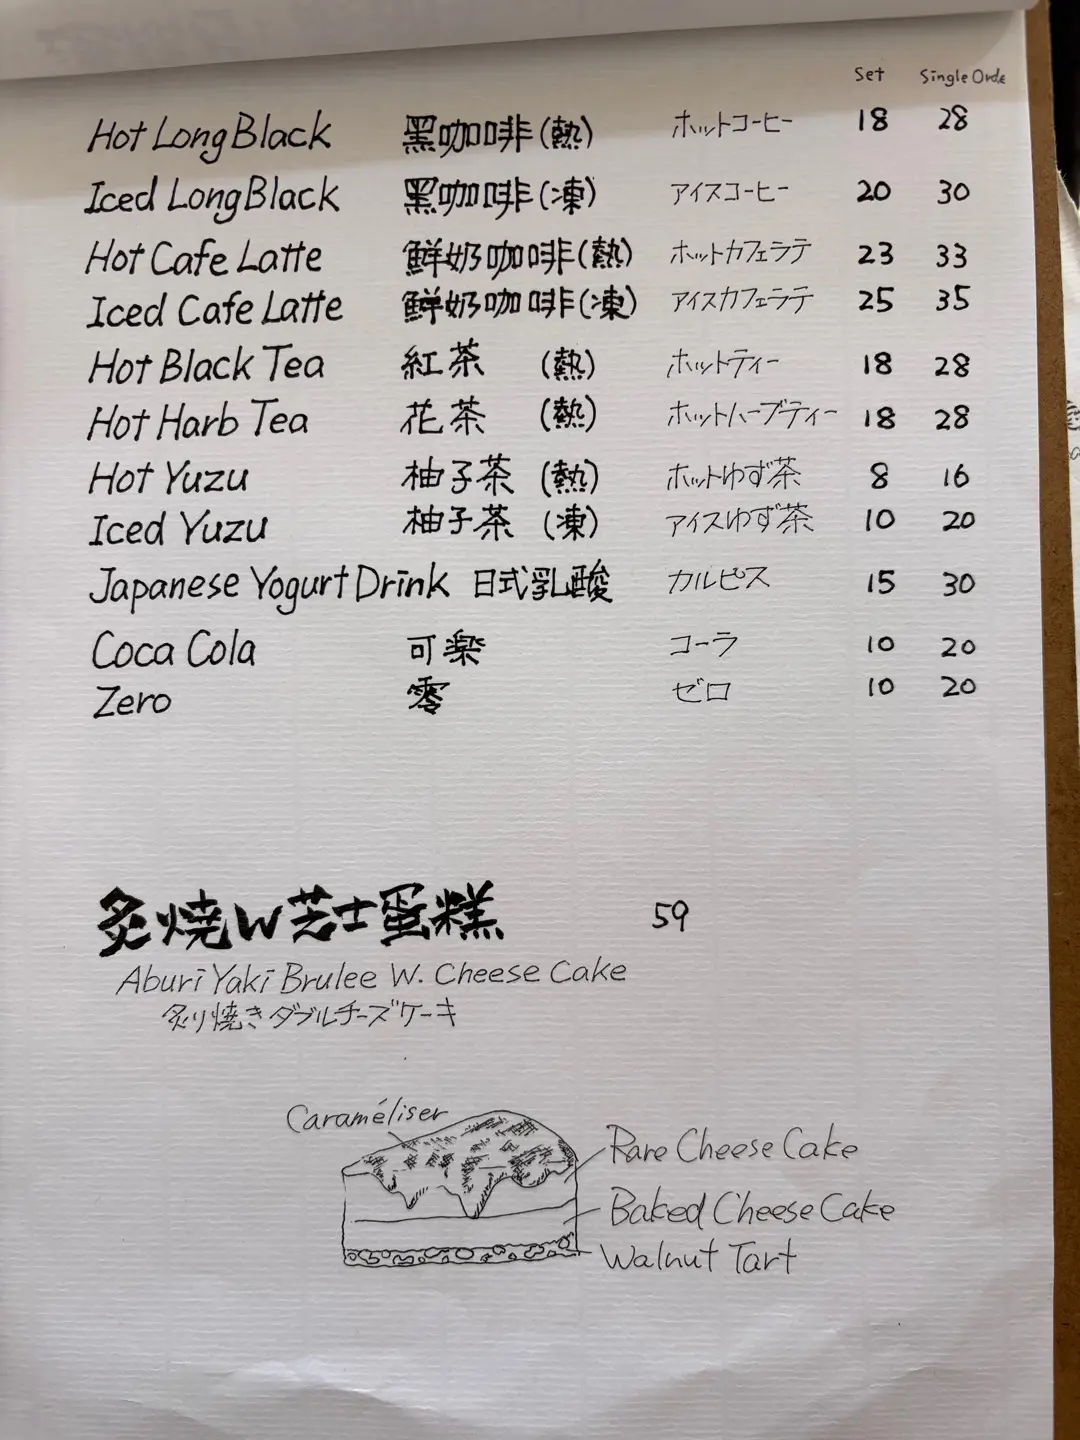 Set Single Orde
Hot Long Black 黑咖啡(熱) ホットコーヒー 18 28
Iced Long Black 黑咖啡(凍) アイスコーヒー 20 30
Hot Cafe Latte 鮮奶咖啡(熱) ホットカフェラテ 23 33
Iced Cafe Latte 鮮奶咖啡(凍) アイスカフェラテ 25 35
Hot Black Tea 紅茶 (熱) ホットティー 18 28
Hot Harb Tea 花茶 (熱) ホットハーブティー 18 28
Hot Yuzu 柚子茶 (熱) ホットゆず茶 8 16
Iced Yuzu 柚子茶 (凍) アイスゆず茶 10 20
Japanese Yogurt Drink 日式乳酸 カルピス 15 30
Coca Cola 可楽 コーラ 10 20
Zero 零 ゼロ 10 20
炙燒W芝士蛋糕 59
Aburi Yaki Brulee W. Cheese Cake
炙り焼きダブルチーズケーキ
Caraméliser
Rare Cheese Cake
Baked Cheese Cake
Walnut Tart